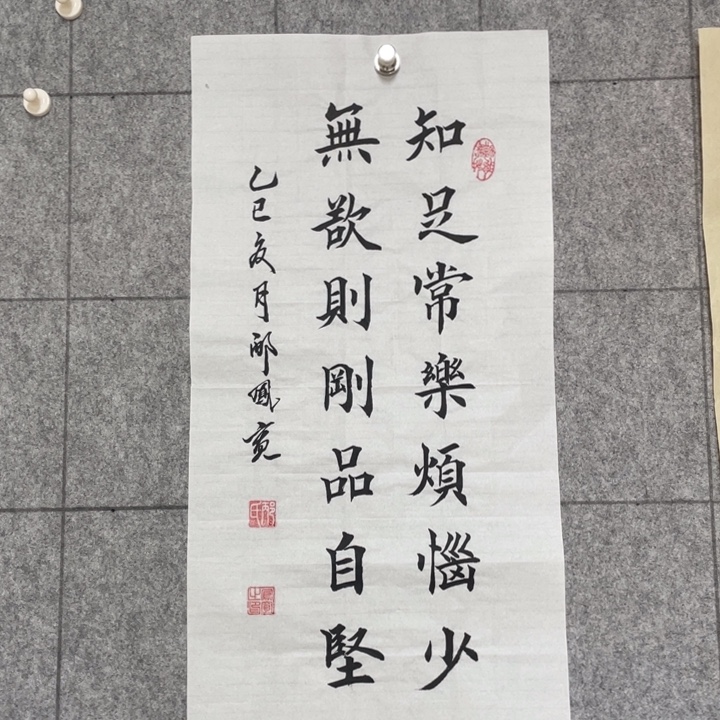 知足常樂煩惱少
無欲則剛品自堅
乙巳亥月邴鳳寬